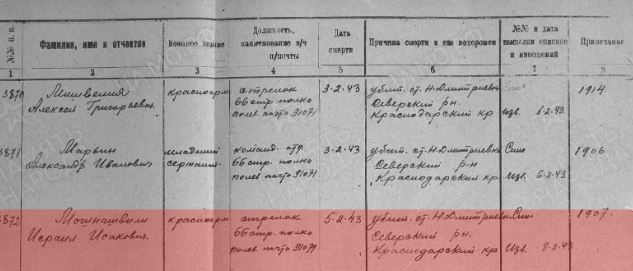 №№ п. п.
Фамилия, имя и отчество
Военное звание
Должность, наименование в/ч п/почты
Дата смерти
Причина смерти и где похоронен
№№ и дата высылки списков и извещений
Примечание
1 2 3 4 5 6 7 8
3870
Алексей Григорьевич.
красноарм
стрелок
66 стр. полка
полев. почта 91071
3·2·43
убит. ст. Н. Дмитриевк
Северский рн.
Краснодарский кр
Изв. 6·2·43
1914
3871
Марьин
Александр Иванович
младший
сержант.
команд. отд.
66 стр. полка
полев. почта 91071
3·2·43
убит. ст. Н. Дмитриевка
Северский рн
Краснодарский кр
Изв. 6·2·43
1906
3872
Мошиашвили
Исраил Исакович.
красноарм
стрелок
66 стр. полка
полев. почта 91071
5·2·43
убит. ст. Н. Дмитриевк
Северский рн.
Краснодарский кр
Изв. 8·2·43
1907.